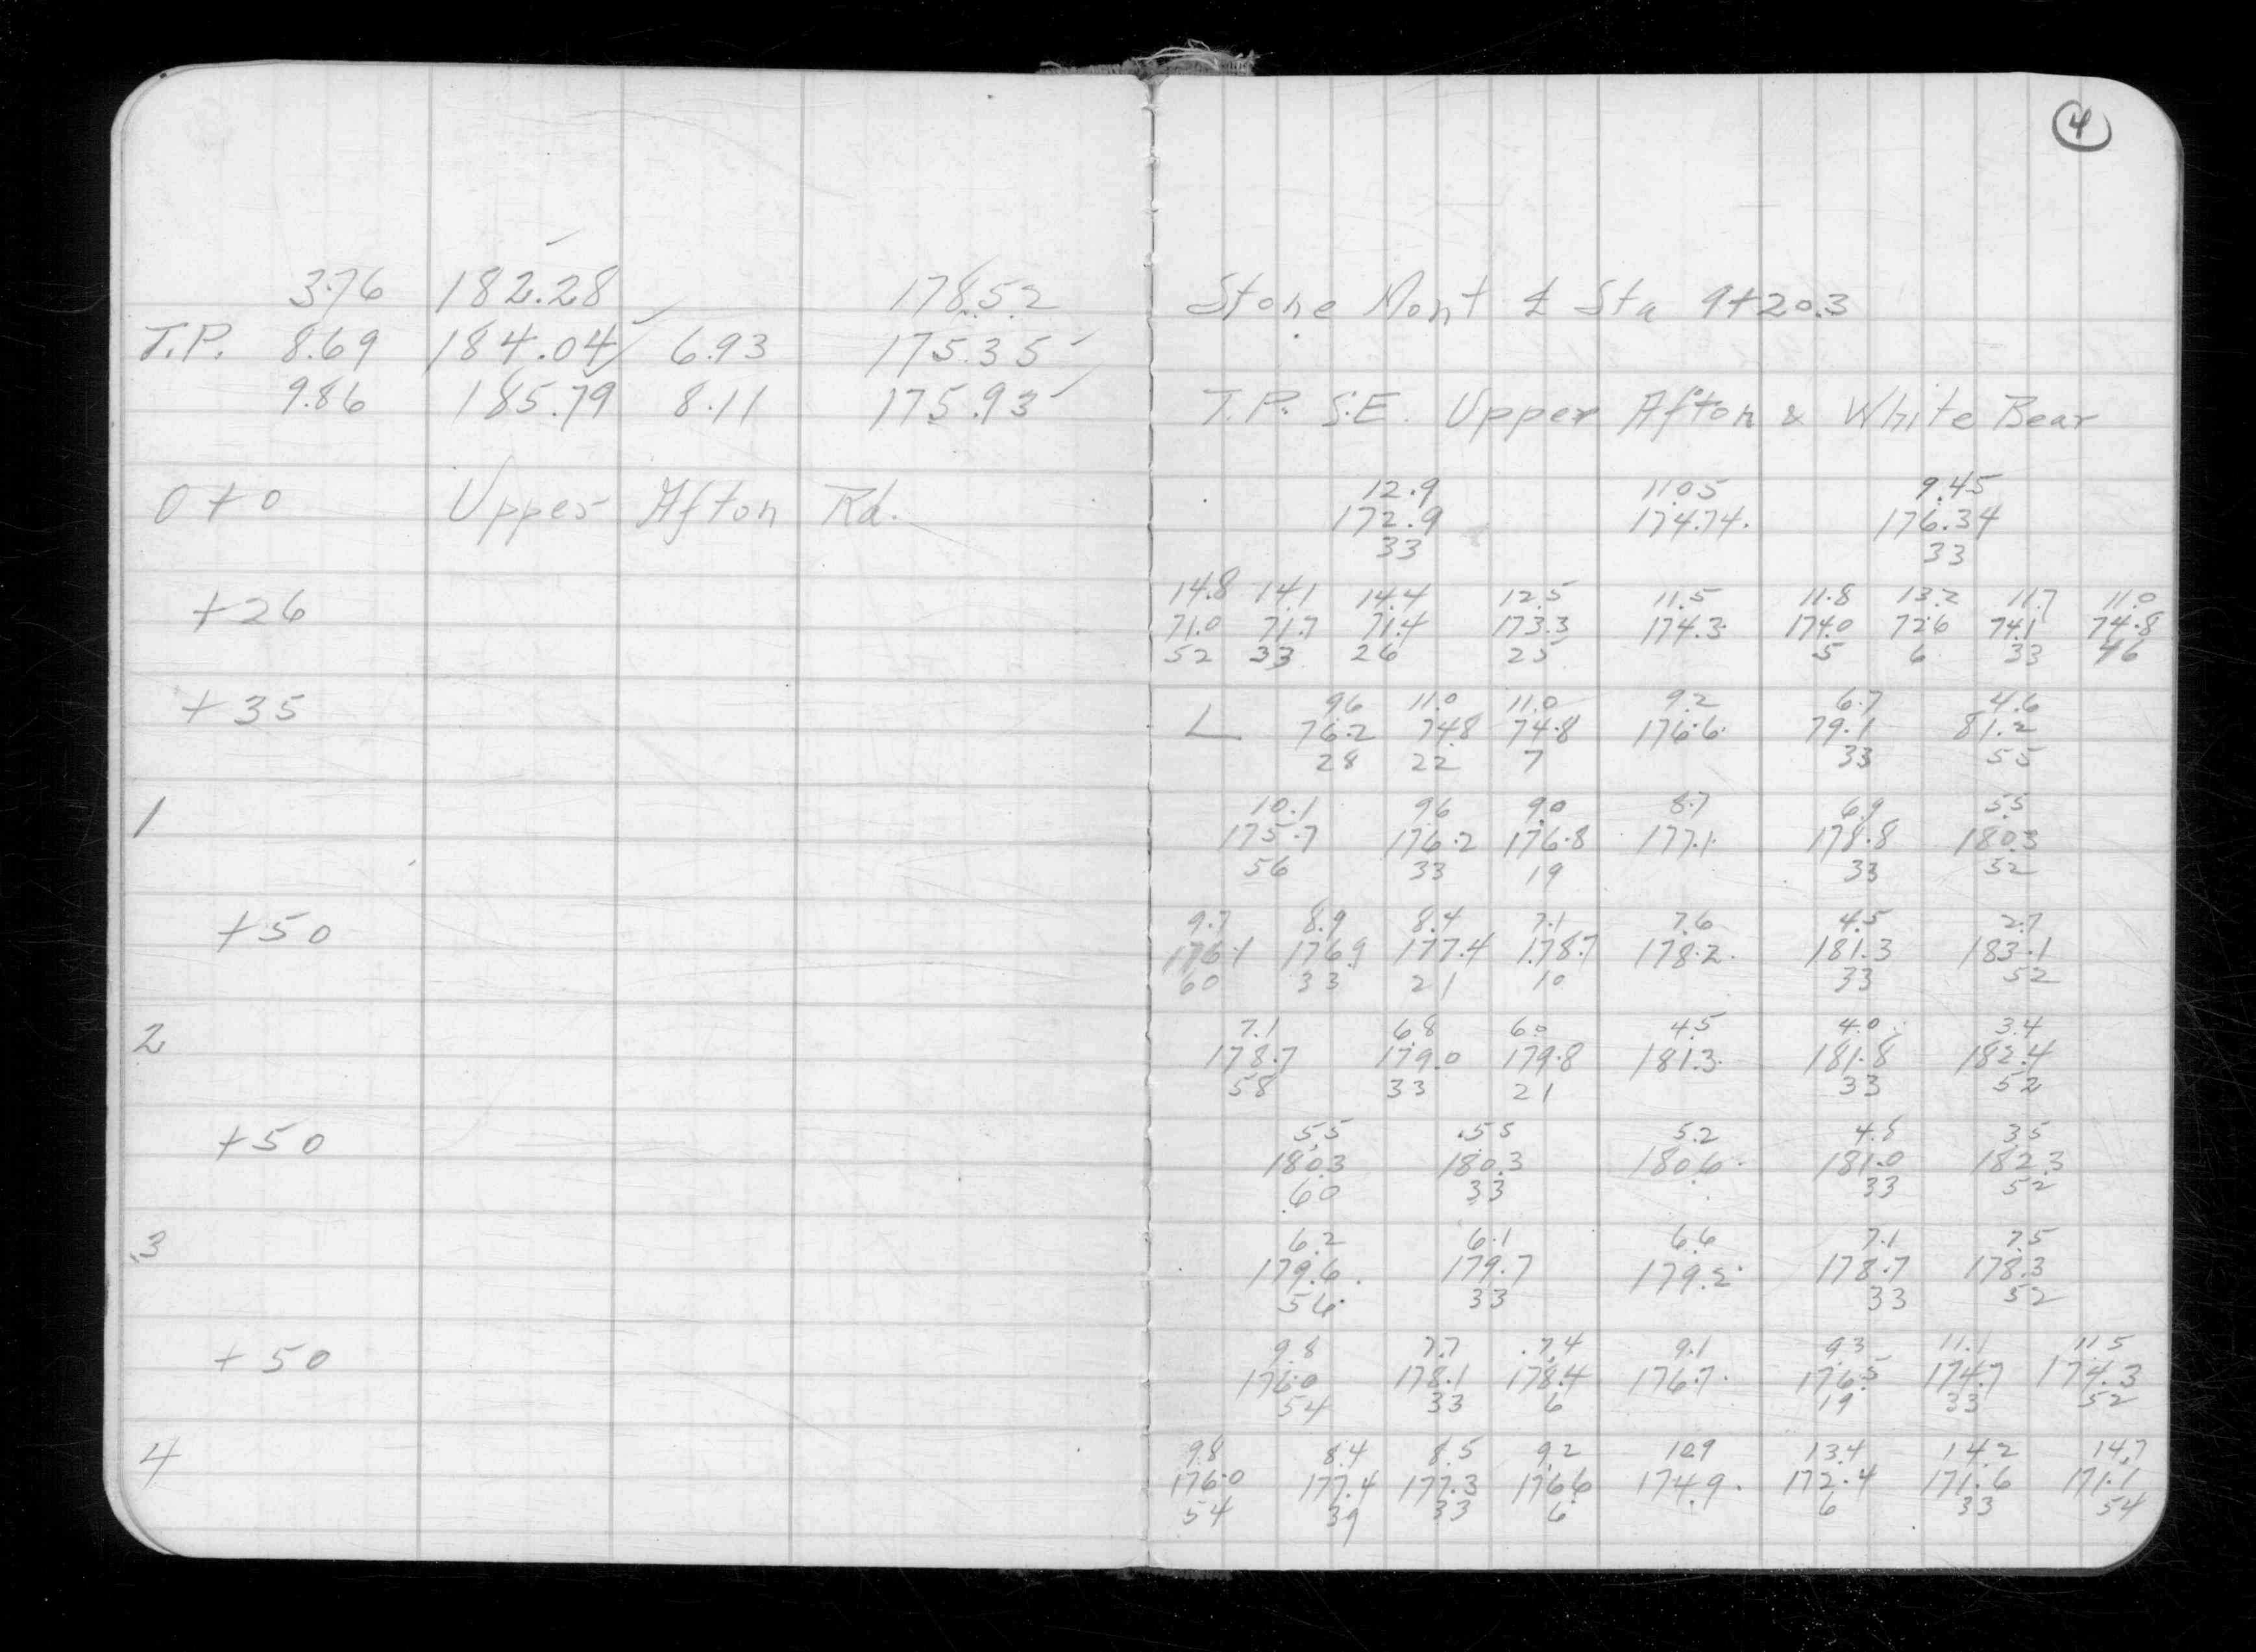 4
3.76 182.28 178.52 Stone Mont ℄ Sta 9+20.3
T.P. 8.69 184.04 6.93 175.35
9.86 185.79 8.11 175.93 T.P. S.E. Upper Afton & White Bear
12.9 11.05 9.45
0+0 Upper Afton Rd. 172.9 174.74 176.34
33 33
14.8 14.1 14.4 12.5 11.5 11.8 13.2 11.7 11.0
+26 71.0 71.7 71.4 173.3 174.3 174.0 72.6 74.1 74.8
52 33 26 25 5 6 33 46
9.6 11.0 11.0 9.2 6.7 4.6
+35 L 76.2 74.8 74.8 176.6 79.1 81.2
28 22 7 33 55
10.1 9.6 9.0 8.7 6.9 5.5
1 175.7 176.2 176.8 177.1 178.8 180.3
56 33 19 33 52
9.7 8.9 8.4 7.1 7.6 4.5 2.7
+50 176.1 176.9 177.4 178.7 178.2 181.3 183.1
60 33 21 10 33 52
7.1 6.8 6.0 4.5 4.0 3.4
2 178.7 179.0 179.8 181.3 181.8 182.4
58 33 21 33 52
5.5 5.5 5.2 4.8 3.5
+50 180.3 180.3 180.6 181.0 182.3
60 33 33 52
6.2 6.1 6.6 7.1 7.5
3 179.6 179.7 179.2 178.7 178.3
56 33 33 52
9.8 7.7 7.4 9.1 9.3 11.1 11.5
+50 176.0 178.1 178.4 176.7 176.5 174.7 174.3
54 33 6 19 33 52
9.8 8.4 8.5 9.2 10.9 13.4 14.2 14.7
4 176.0 177.4 177.3 176.6 174.9 172.4 171.6 171.1
54 39 33 6 6 33 54